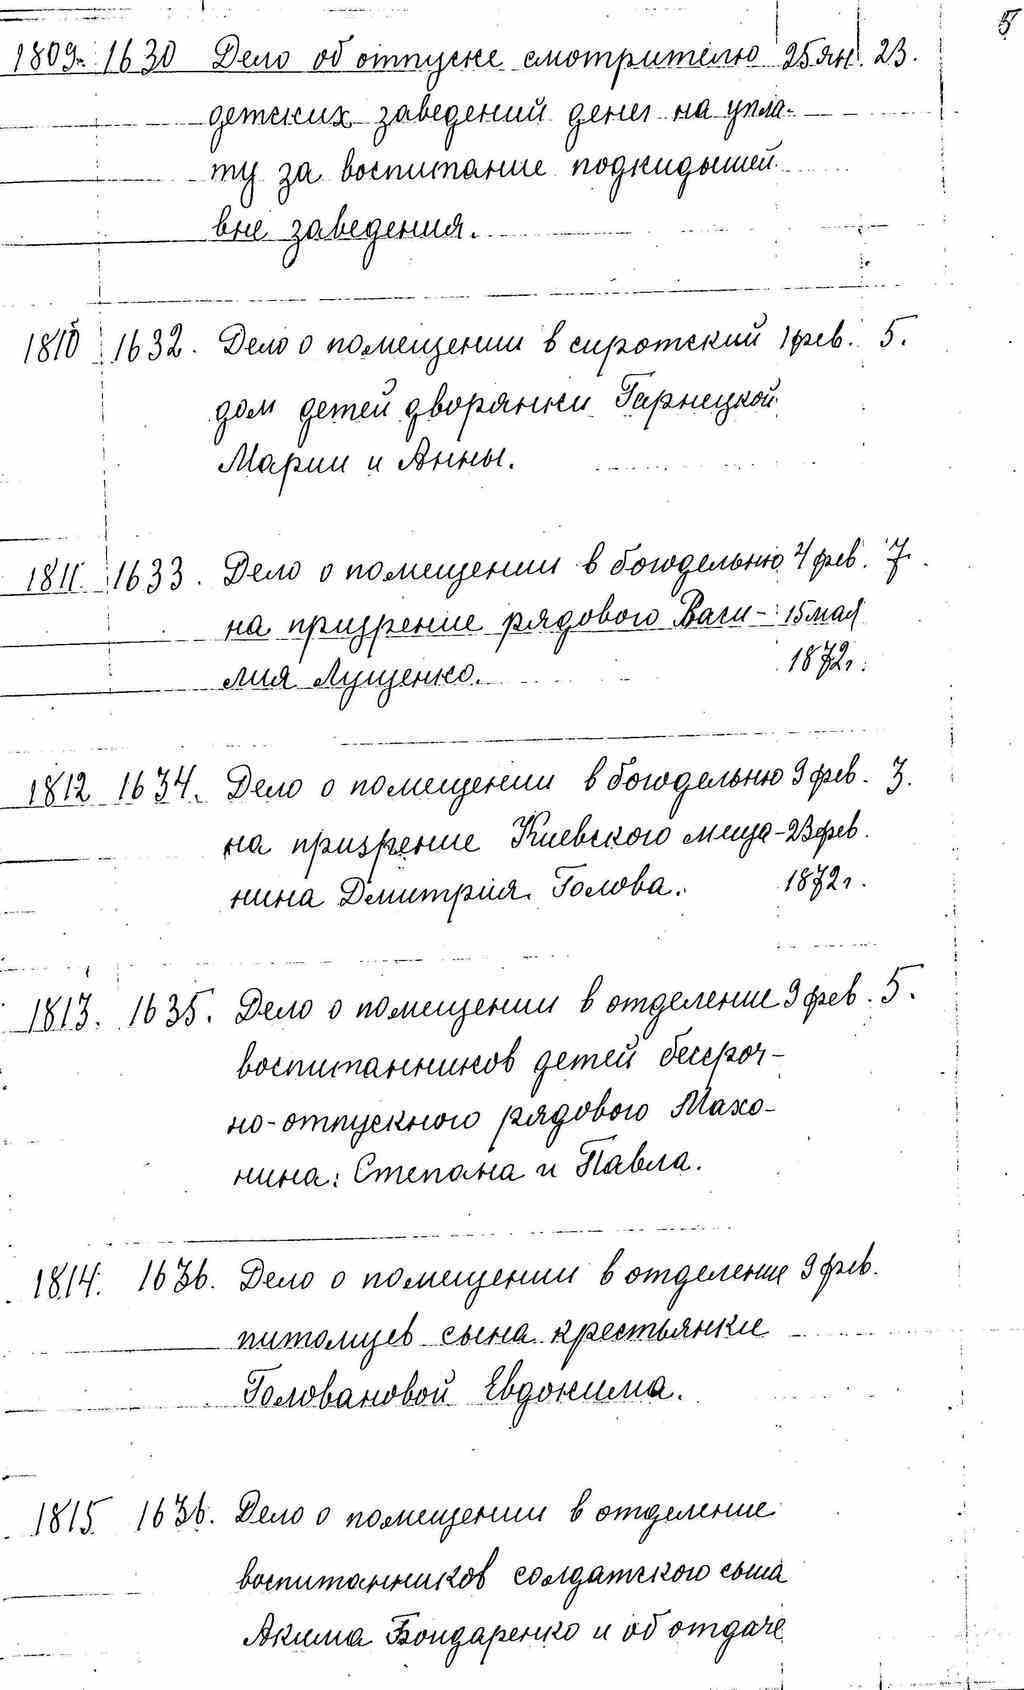 5
1809. 1630 Дело об отпуске смотрителю 25 ян. 23.
детских заведений денег на упла-
ту за воспитание подкидышей
вне заведения.
1810 1632. Дело о помещении в сиротский 1 фев. 5.
дом детей дворянки Гарнецкой
Марии и Анны.
1811. 1633. Дело о помещении в богодельню 4 фев. 7.
на призрение рядового Васи- 15 мая
лия Лущенко. 1872 г.
1812 1634. Дело о помещении в богодельню 9 фев. 3.
на призрение Киевского меща- 23 фев.
нина Дмитрия Голова. 1872 г.
1813. 1635. Дело о помещении в отделение 9 фев. 5.
воспитанников детей бессроч-
но-отпускного рядового Махо-
нина: Степана и Павла.
1814. 1636. Дело о помещении в отделение 9 фев.
питомцев сына крестьянки
Головановой Евдокима.
1815 1636. Дело о помещении в отделение
воспитанников солдатского сына
Акима Бондаренко и об отдаче